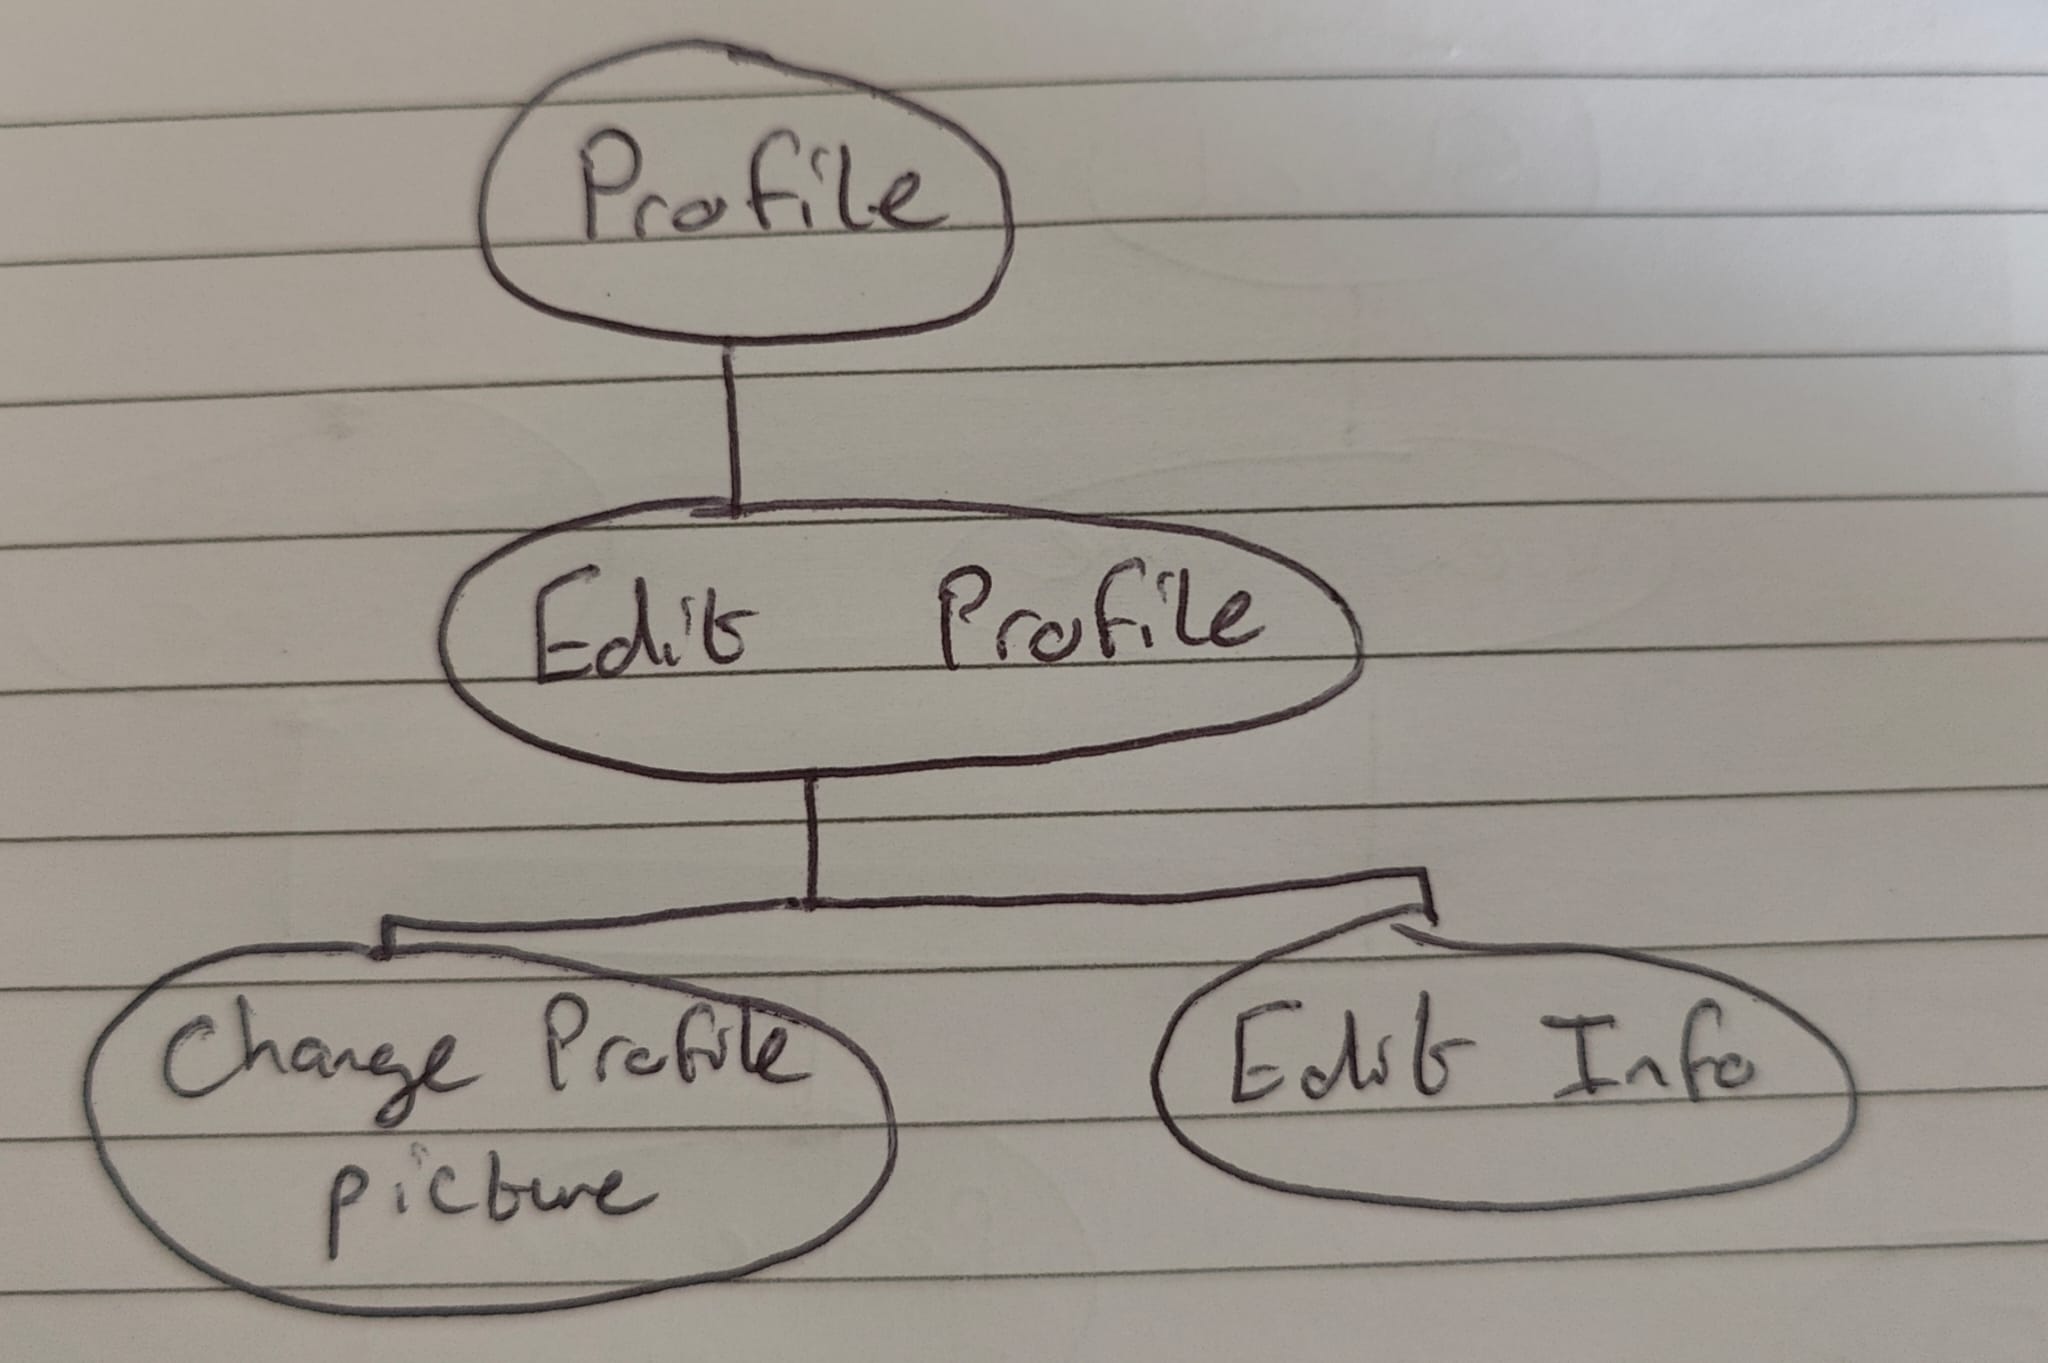 Profile
Edit Profile
Change Profile
picture
Edit Info